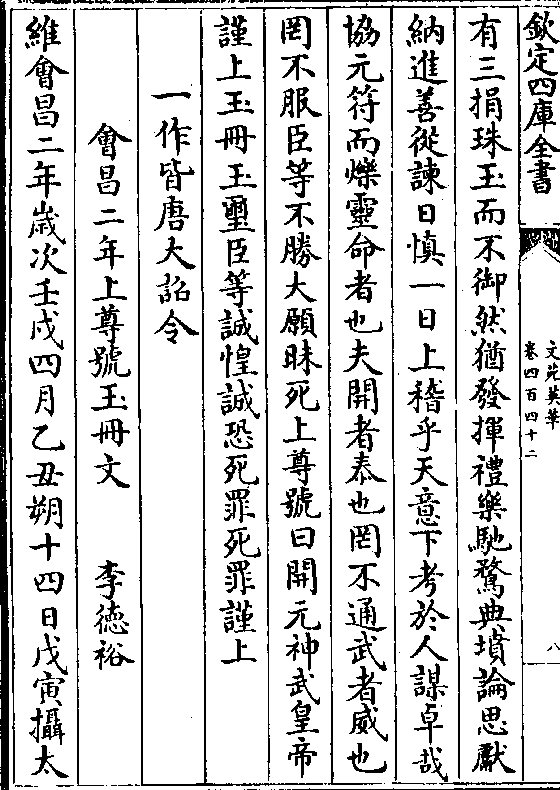 欽定四庫全書
文苑英華
卷四百四十二
八
有三捐珠玉而不御然猶發揮禮樂馳騖典墳論思獻
納進善從諫日慎一日上稽乎天意下考於人謀卓哉
協元符而爍靈命者也夫開者泰也罔不通武者威也
罔不服臣等不勝大願昧死上尊號曰開元神武皇帝
謹上玉冊玉璽臣等誠惶誠恐死罪死罪謹上
一作皆唐大詔令
會昌二年上尊號玉冊文　李德裕
維會昌二年歲次壬戌四月乙丑朔十四日戊寅攝太